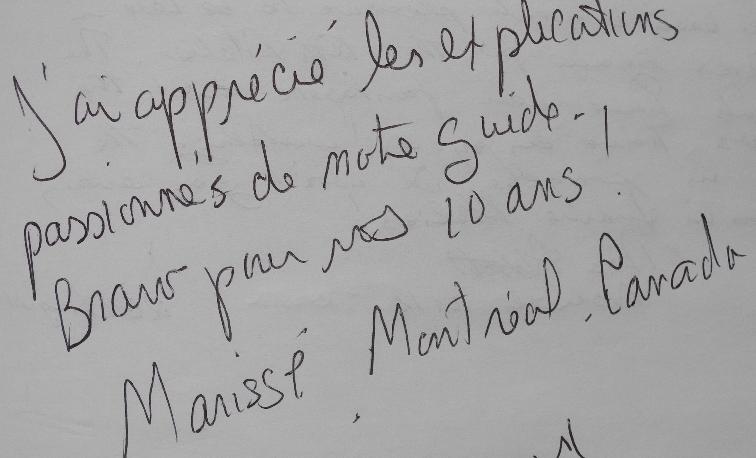 J'ai apprécié les explications
passionnés de notre guide.
Bravo pour vos 10 ans !
Marissé, Montréal, Canada